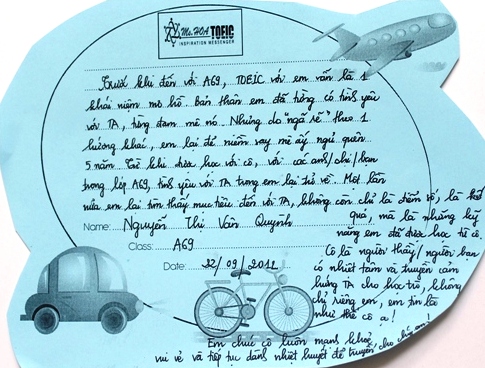 Ms. HOA TOEIC
INSPIRATION MESSENGER
Trước khi đến với A69, TOEIC với em vẫn là 1
khái niệm mơ hồ. Bản thân em đã từng có tình yêu
với TA, từng đam mê nó. Nhưng do "ngã rẽ" theo 1
hướng khác, em lại để niềm say mê ấy ngủ quên
5 năm. Từ khi được học với cô, với các anh/chị/bạn
trong lớp A69, tình yêu với TA trong em lại trở về. Một lần
nữa em lại tìm thấy mục tiêu đến với TA, không còn chỉ là điểm số, là kết
quả, mà là những kỹ
năng em đã được học từ cô.
Name: Nguyễn Thị Vân Quỳnh
Class: A69
Date: 22/09/2011
Cô là người thầy/người bạn
có nhiệt tâm và truyền cảm
hứng TA cho học trò, không
chỉ riêng em, em tin là
như thế cô ạ!
Em chúc cô luôn mạnh khoẻ,
vui vẻ và tiếp tục dáng nhiệt huyết để truyền cho chúng em!